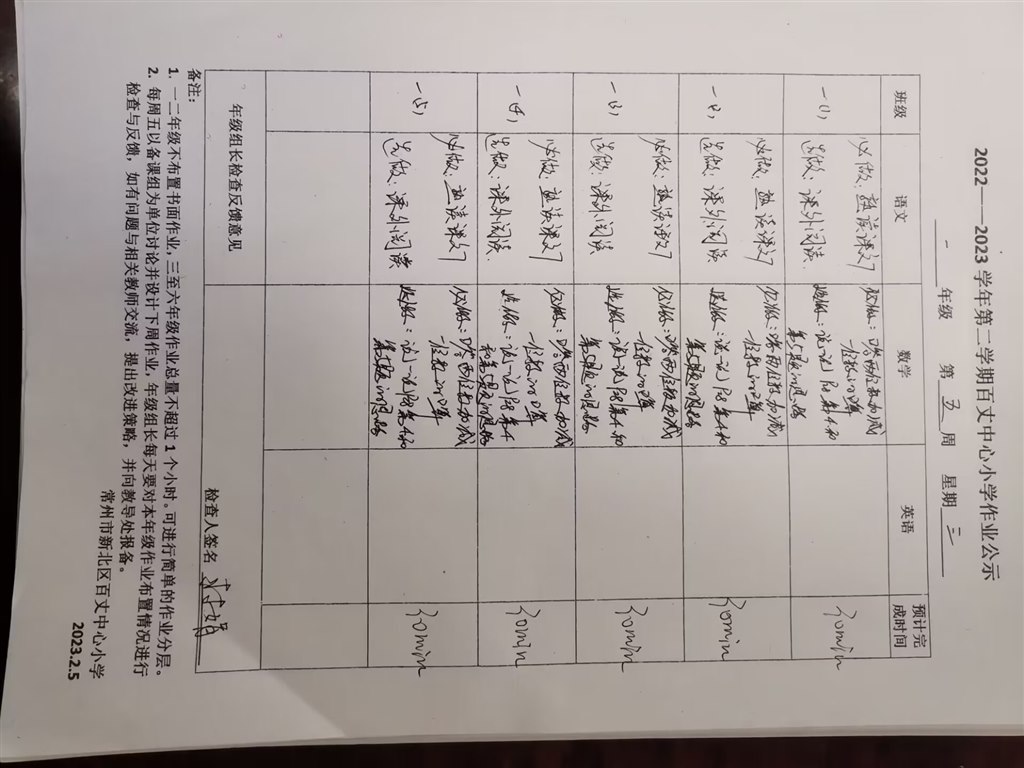 2022——2023 学年第二学期百丈中心小学作业公示
一 年级 第 五 周 星期 三
班级 语文 数学 英语 预计完成时间
一(1)
必做：熟读课文
选做：课外阅读
必做：
一位数的口算
选做：说一说
30min
一(2)
必做：熟读课文
选做：课外阅读
必做：两位数加减
一位数的口算
选做：说一说
30min
一(3)
必做：熟读课文
选做：课外阅读
必做：两位数加减
一位数的口算
选做：说一说
30min
一(4)
必做：熟读课文
选做：课外阅读
必做：两位数加减
一位数的口算
选做：说一说
30min
一(5)
必做：熟读课文
选做：课外阅读
必做：两位数加减
一位数的口算
选做：说一说
30min
年级组长检查反馈意见 检查人签名
备注：
1. 一二年级不布置书面作业，三至六年级作业总量不超过 1 个小时。可进行简单的作业分层。
2. 每周五以备课组为单位讨论并设计下周作业，年级组长每天要对本年级作业布置情况进行
检查与反馈，如有问题与相关教师交流，提出改进策略，并向教导处报备。
常州市新北区百丈中心小学
2023.2.5